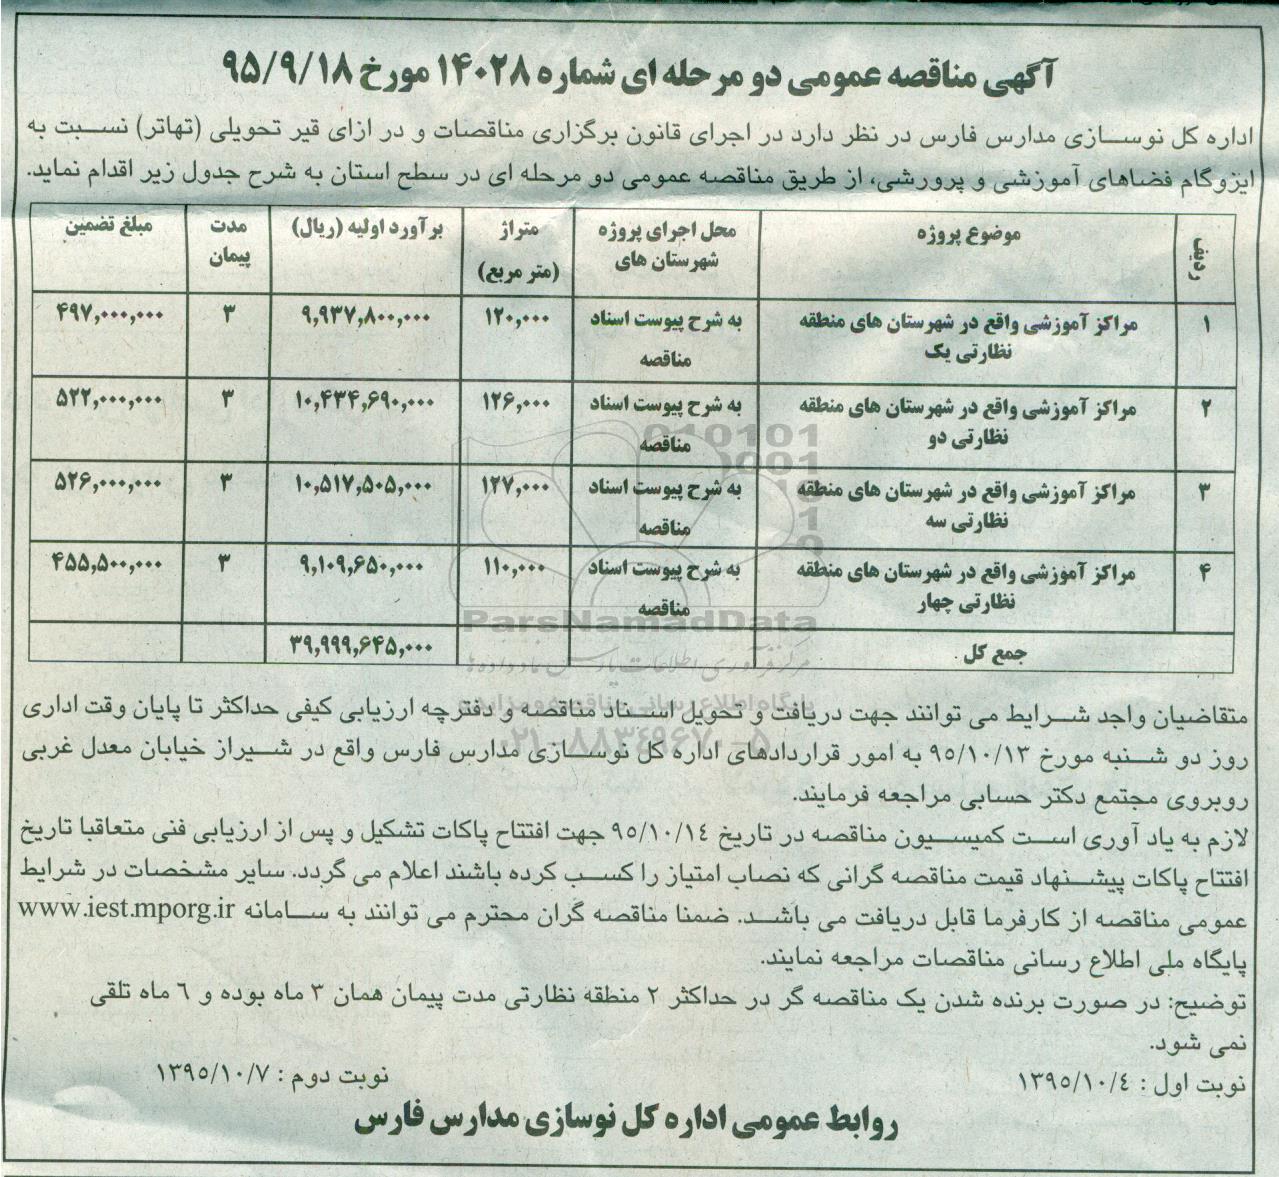 آگهی مناقصه عمومی دو مرحله ای شماره ۱۴۰۲۸ مورخ ۹۵/۹/۱۸
اداره کل نوسازی مدارس فارس در نظر دارد در اجرای قانون برگزاری مناقصات و در ازای قیر تحویلی (تهاتر) نسبت به
ایزوگام فضاهای آموزشی و پرورشی، از طریق مناقصه عمومی دو مرحله ای در سطح استان به شرح جدول زیر اقدام نماید.
ردیف موضوع پروژه محل اجرای پروژه شهرستان های متراژ (متر مربع) برآورد اولیه (ریال) مدت پیمان مبلغ تضمین
۱ مراکز آموزشی واقع در شهرستان های منطقه نظارتی یک به شرح پیوست اسناد مناقصه ۱۲۰,۰۰۰ ۹,۹۳۷,۸۰۰,۰۰۰ ۳ ۴۹۷,۰۰۰,۰۰۰
۲ مراکز آموزشی واقع در شهرستان های منطقه نظارتی دو به شرح پیوست اسناد مناقصه ۱۲۶,۰۰۰ ۱۰,۴۳۴,۶۹۰,۰۰۰ ۳ ۵۲۲,۰۰۰,۰۰۰
۳ مراکز آموزشی واقع در شهرستان های منطقه نظارتی سه به شرح پیوست اسناد مناقصه ۱۲۷,۰۰۰ ۱۰,۵۱۷,۵۰۵,۰۰۰ ۳ ۵۲۶,۰۰۰,۰۰۰
۴ مراکز آموزشی واقع در شهرستان های منطقه نظارتی چهار به شرح پیوست اسناد مناقصه ۱۱۰,۰۰۰ ۹,۱۰۹,۶۵۰,۰۰۰ ۳ ۴۵۵,۵۰۰,۰۰۰
جمع کل ۳۹,۹۹۹,۶۴۵,۰۰۰
ParsNamadData
مرکز فرآوری اطلاعات پارس نماد داده ها
پایگاه اطلاع رسانی مناقصه و مزایده
۰۲۱-۸۸۳۴۹۶۷۰-۵
متقاضیان واجد شرایط می توانند جهت دریافت و تحویل اسناد مناقصه و دفترچه ارزیابی کیفی حداکثر تا پایان وقت اداری
روز دو شنبه مورخ ۹۵/۱۰/۱۳ به امور قراردادهای اداره کل نوسازی مدارس فارس واقع در شیراز خیابان معدل غربی
روبروی مجتمع دکتر حسابی مراجعه فرمایند.
لازم به یاد آوری است کمیسیون مناقصه در تاریخ ۹۵/۱۰/۱۴ جهت افتتاح پاکات تشکیل و پس از ارزیابی فنی متعاقبا تاریخ
افتتاح پاکات پیشنهاد قیمت مناقصه گرانی که نصاب امتیاز را کسب کرده باشند اعلام می گردد. سایر مشخصات در شرایط
عمومی مناقصه از کارفرما قابل دریافت می باشد. ضمنا مناقصه گران محترم می توانند به سامانه www.iest.mporg.ir
پایگاه ملی اطلاع رسانی مناقصات مراجعه نمایند.
توضیح: در صورت برنده شدن یک مناقصه گر در حداکثر ۲ منطقه نظارتی مدت پیمان همان ۳ ماه بوده و ۶ ماه تلقی
نمی شود.
نوبت اول : ۱۳۹۵/۱۰/۴
نوبت دوم : ۱۳۹۵/۱۰/۷
روابط عمومی اداره کل نوسازی مدارس فارس